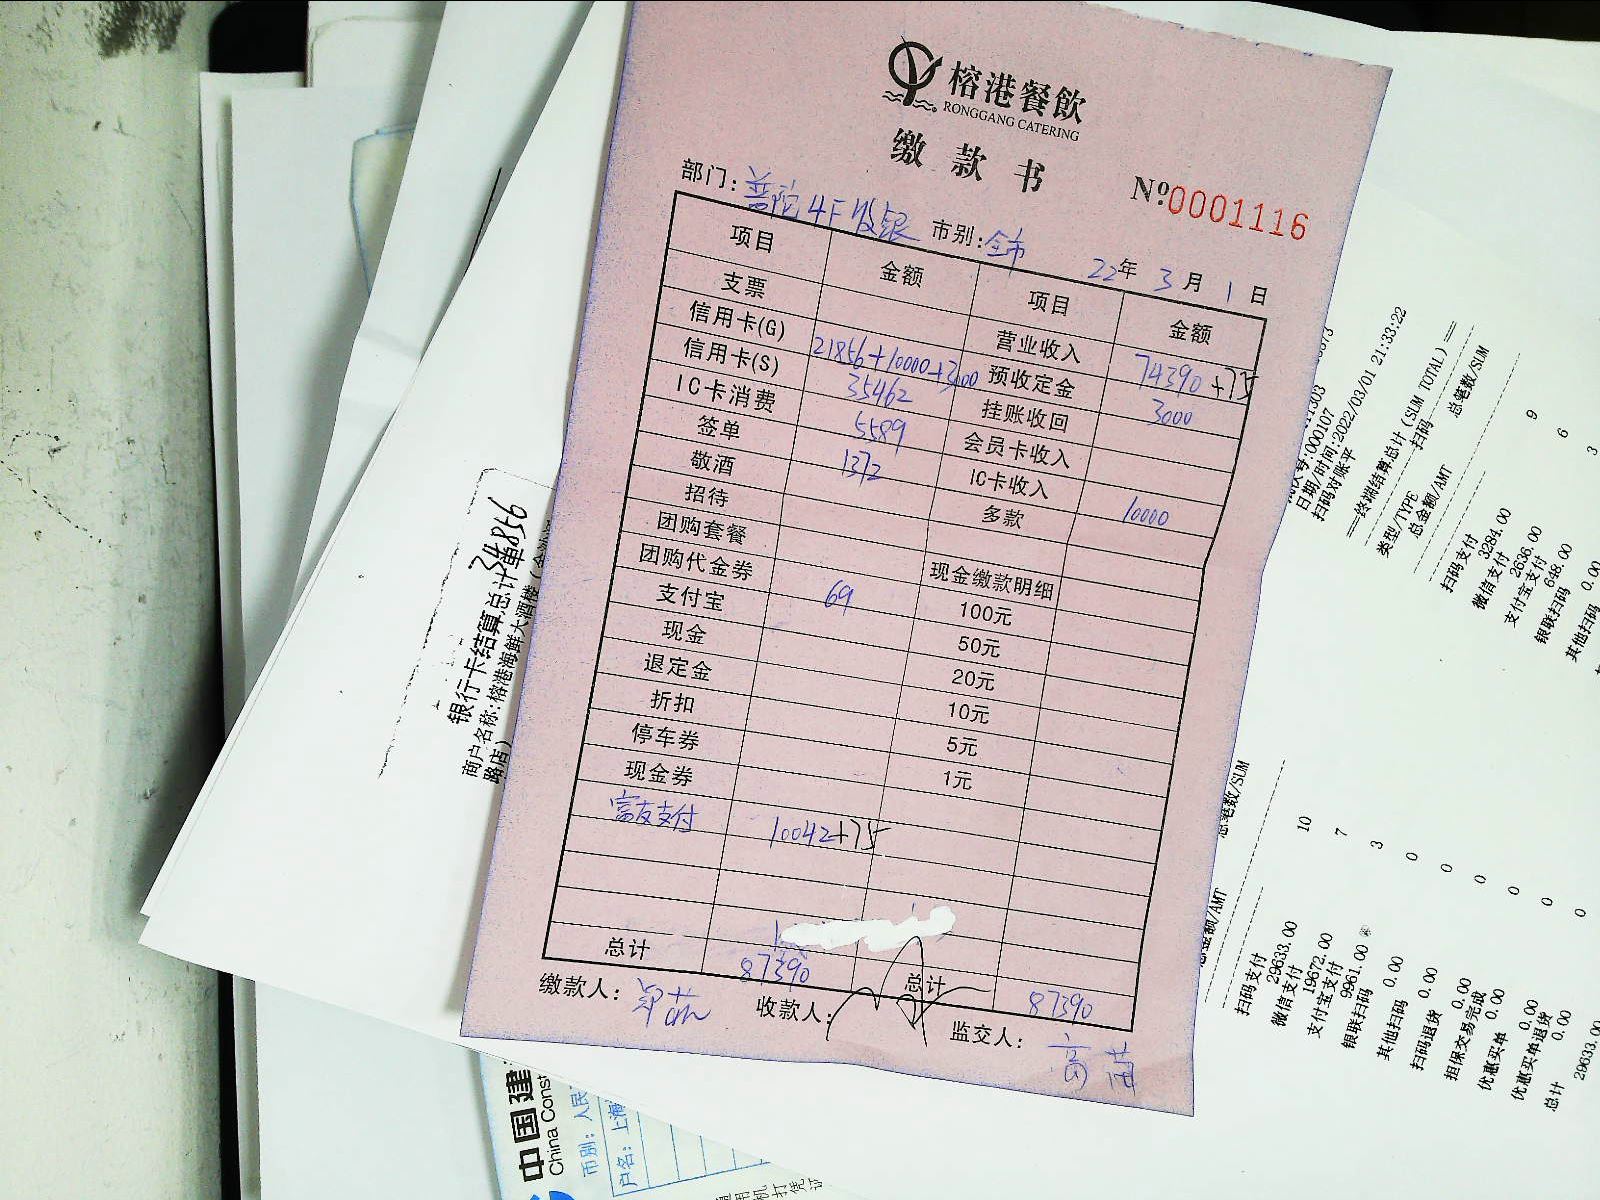 榕港餐飲
RONGGANG CATERING
缴款书
No:0001116
部门: 普陀4F收银 市别: 全市 22年3月1日
项目 金额 项目 金额
支票 营业收入 74390+75
信用卡(G) 21856+10000+3000 预收定金 3000
信用卡(S) 35462 挂账收回
IC卡消费 5589 会员卡收入
签单 1372 IC卡收入 10000
敬酒 多款
招待
团购套餐 现金缴款明细
团购代金券 69 100元
支付宝 50元
现金 20元
退定金 10元
折扣 5元
停车券 1元
现金券
富友支付 10042+75
总计 87390 总计 87390
缴款人: 收款人: 监交人:
34856
银行卡结算总计单
商户名称:榕港海鲜大酒楼(金沙
路店)
中国建
China Const
市别:人民
户名:上海
日期/时间:2022/03/01 21:33:22
扫码对账平
==终端结算总计 (SUM TOTAL) ==
类型/TYPE 扫码 总笔数/SUM
总金额/AMT
扫码支付 9
3284.00
微信支付 6
2636.00
支付宝支付 3
648.00
银联扫码
0.00
其他扫码
总笔数/SUM
总金额/AMT
扫码支付 10
29633.00
微信支付 7
19672.00
支付宝支付 3
9961.00
银联扫码 0
0.00
其他扫码 0
0.00
扫码退货 0
0.00
担保交易完成 0
0.00
优惠买单 0
0.00
优惠买单退货 0
0.00
总计
29633.00